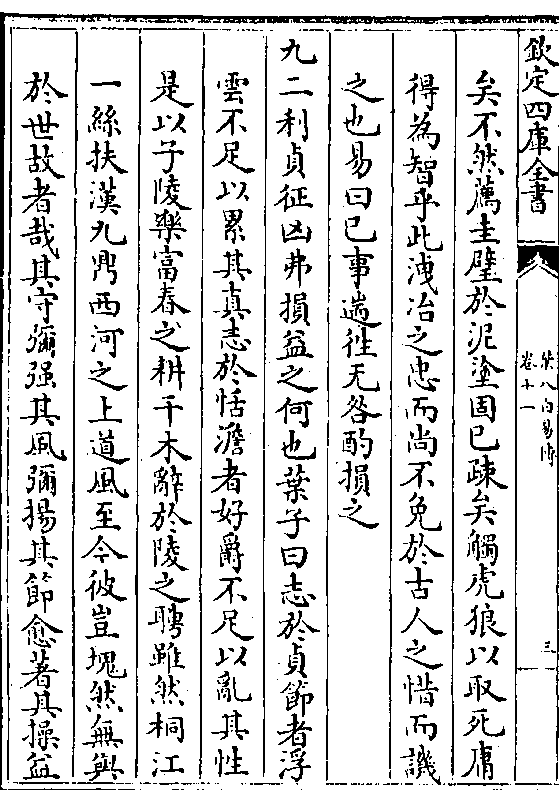 欽定四庫全書
葉八白易傳
卷十一
三
矣不然薦圭璧於泥塗固已疎矣觸虎狼以取死庸
得為智乎此洩冶之忠而尚不免於古人之惜而譏
之也易曰已事遄徃无咎酌損之
九二利貞征凶弗損益之何也葉子曰志於貞節者浮
雲不足以累其真志於恬澹者好爵不足以亂其性
是以子陵樂富春之耕干木辭於陵之聘雖然桐江
一絲扶漢九鼎西河之上道風至今彼豈塊然無與
於世故者哉其守彌强其風彌揚其節愈著其操益